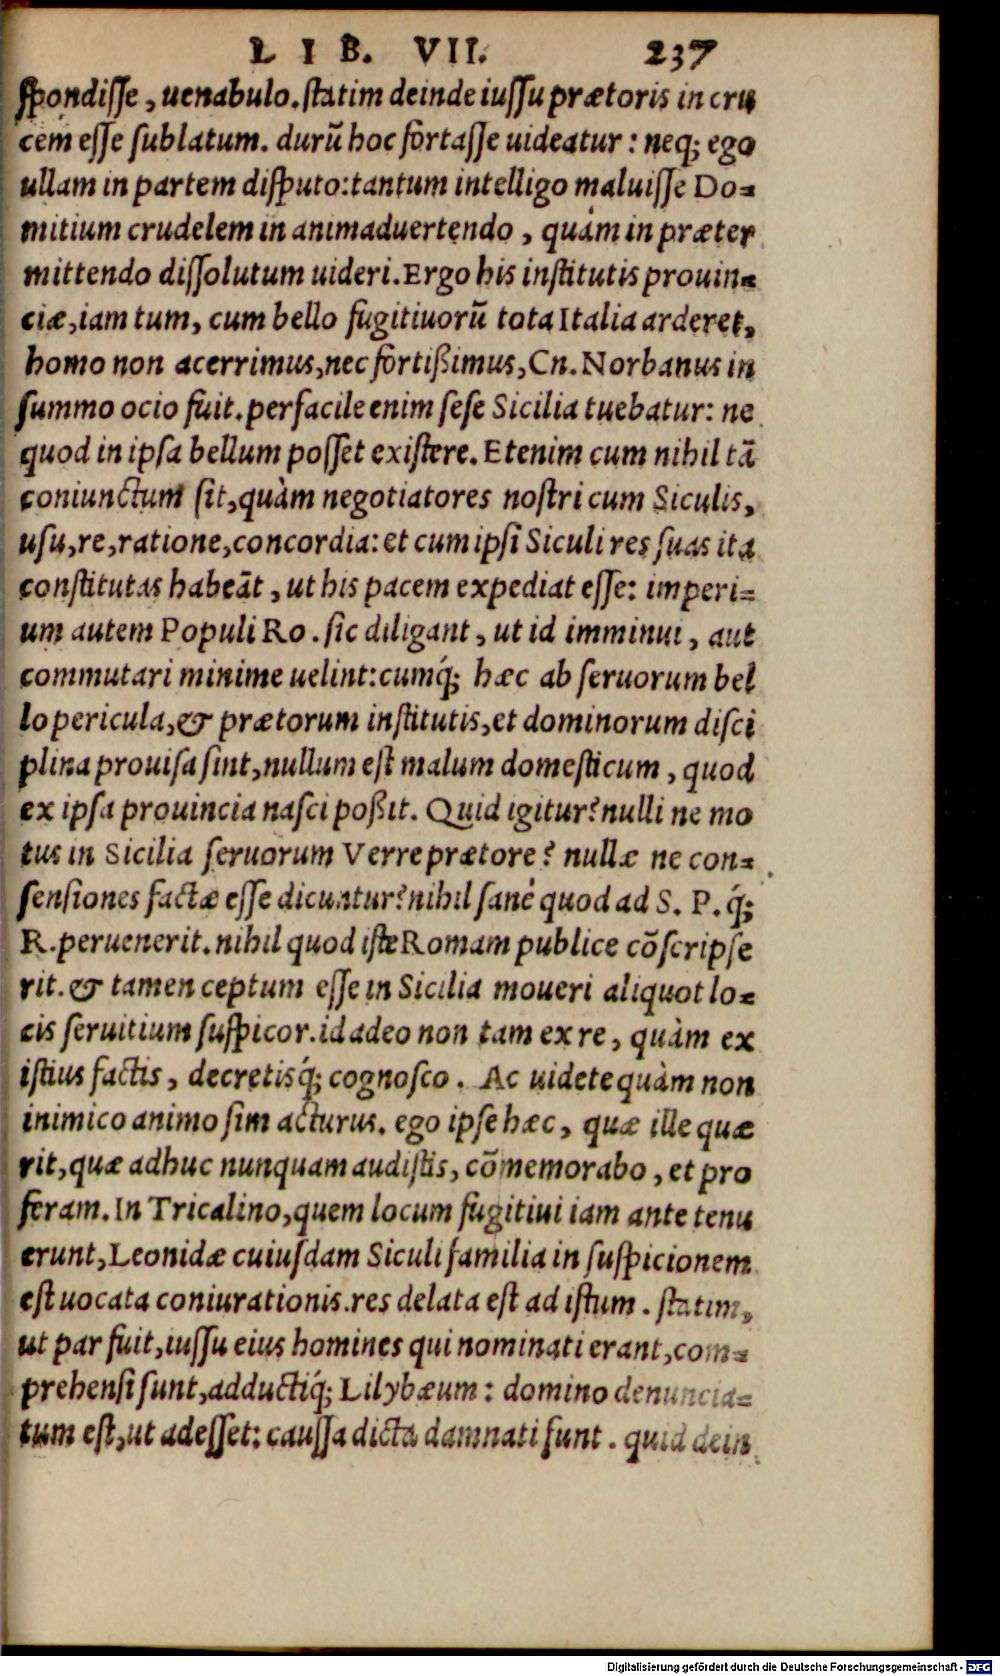 LIB. VII. 237
spondisse, uenabulo. statim deinde iussu prætoris in cru
cem esse sublatum. durũ hoc fortasse uideatur: neq; ego
ullam in partem disputo: tantum intelligo maluisse Do=
mitium crudelem in animaduertendo, quàm in præter
mittendo dissolutum uideri. Ergo his institutis prouin=
ciæ, iam tum, cum bello fugitiuorũ tota Italia arderet,
homo non acerrimus, nec fortißimus, Cn. Norbanus in
summo ocio fuit. perfacile enim sese Sicilia tuebatur: ne
quod in ipsa bellum posset existere. Etenim cum nihil tã
coniunctum sit, quàm negotiatores nostri cum Siculis,
usu, re, ratione, concordia: et cum ipsi Siculi res suas ita
constitutas habeãt, ut his pacem expediat esse: imperi=
um autem Populi Ro. sic diligant, ut id imminui, aut
commutari minime uelint: cumq́; hæc ab seruorum bel
lo pericula, & prætorum institutis, et dominorum disci
plina prouisa sint, nullum est malum domesticum, quod
ex ipsa prouincia nasci poßit. Quid igitur? nulli ne mo
tus in Sicilia seruorum Verre prætore? nullæ ne con=
sensiones factæ esse dicuntur? nihil sanè quod ad S. P. q́;
R. peruenerit. nihil quod iste Romam publice cõscripse
rit. & tamen ceptum esse in Sicilia moueri aliquot lo=
cis seruitium suspicor. id adeo non tam ex re, quàm ex
istius factis, decretisq́; cognosco. Ac uidete quàm non
inimico animo sim acturus. ego ipse hæc, quæ ille quæ
rit, quæ adhuc nunquam audistis, cõmemorabo, et pro
feram. In Tricalino, quem locum fugitiui iam ante tenu
erunt, Leonidæ cuiusdam Siculi familia in suspicionem
est uocata coniurationis. res delata est ad istum. statim,
ut par fuit, iussu eius homines qui nominati erant, com=
prehensi sunt, adductiq́; Lilybæum: domino denuncia=
tum est, ut adesset: caussa dicta damnati sunt. quid dein
Digitalisierung gefördert durch die Deutsche Forschungsgemeinschaft - DFG